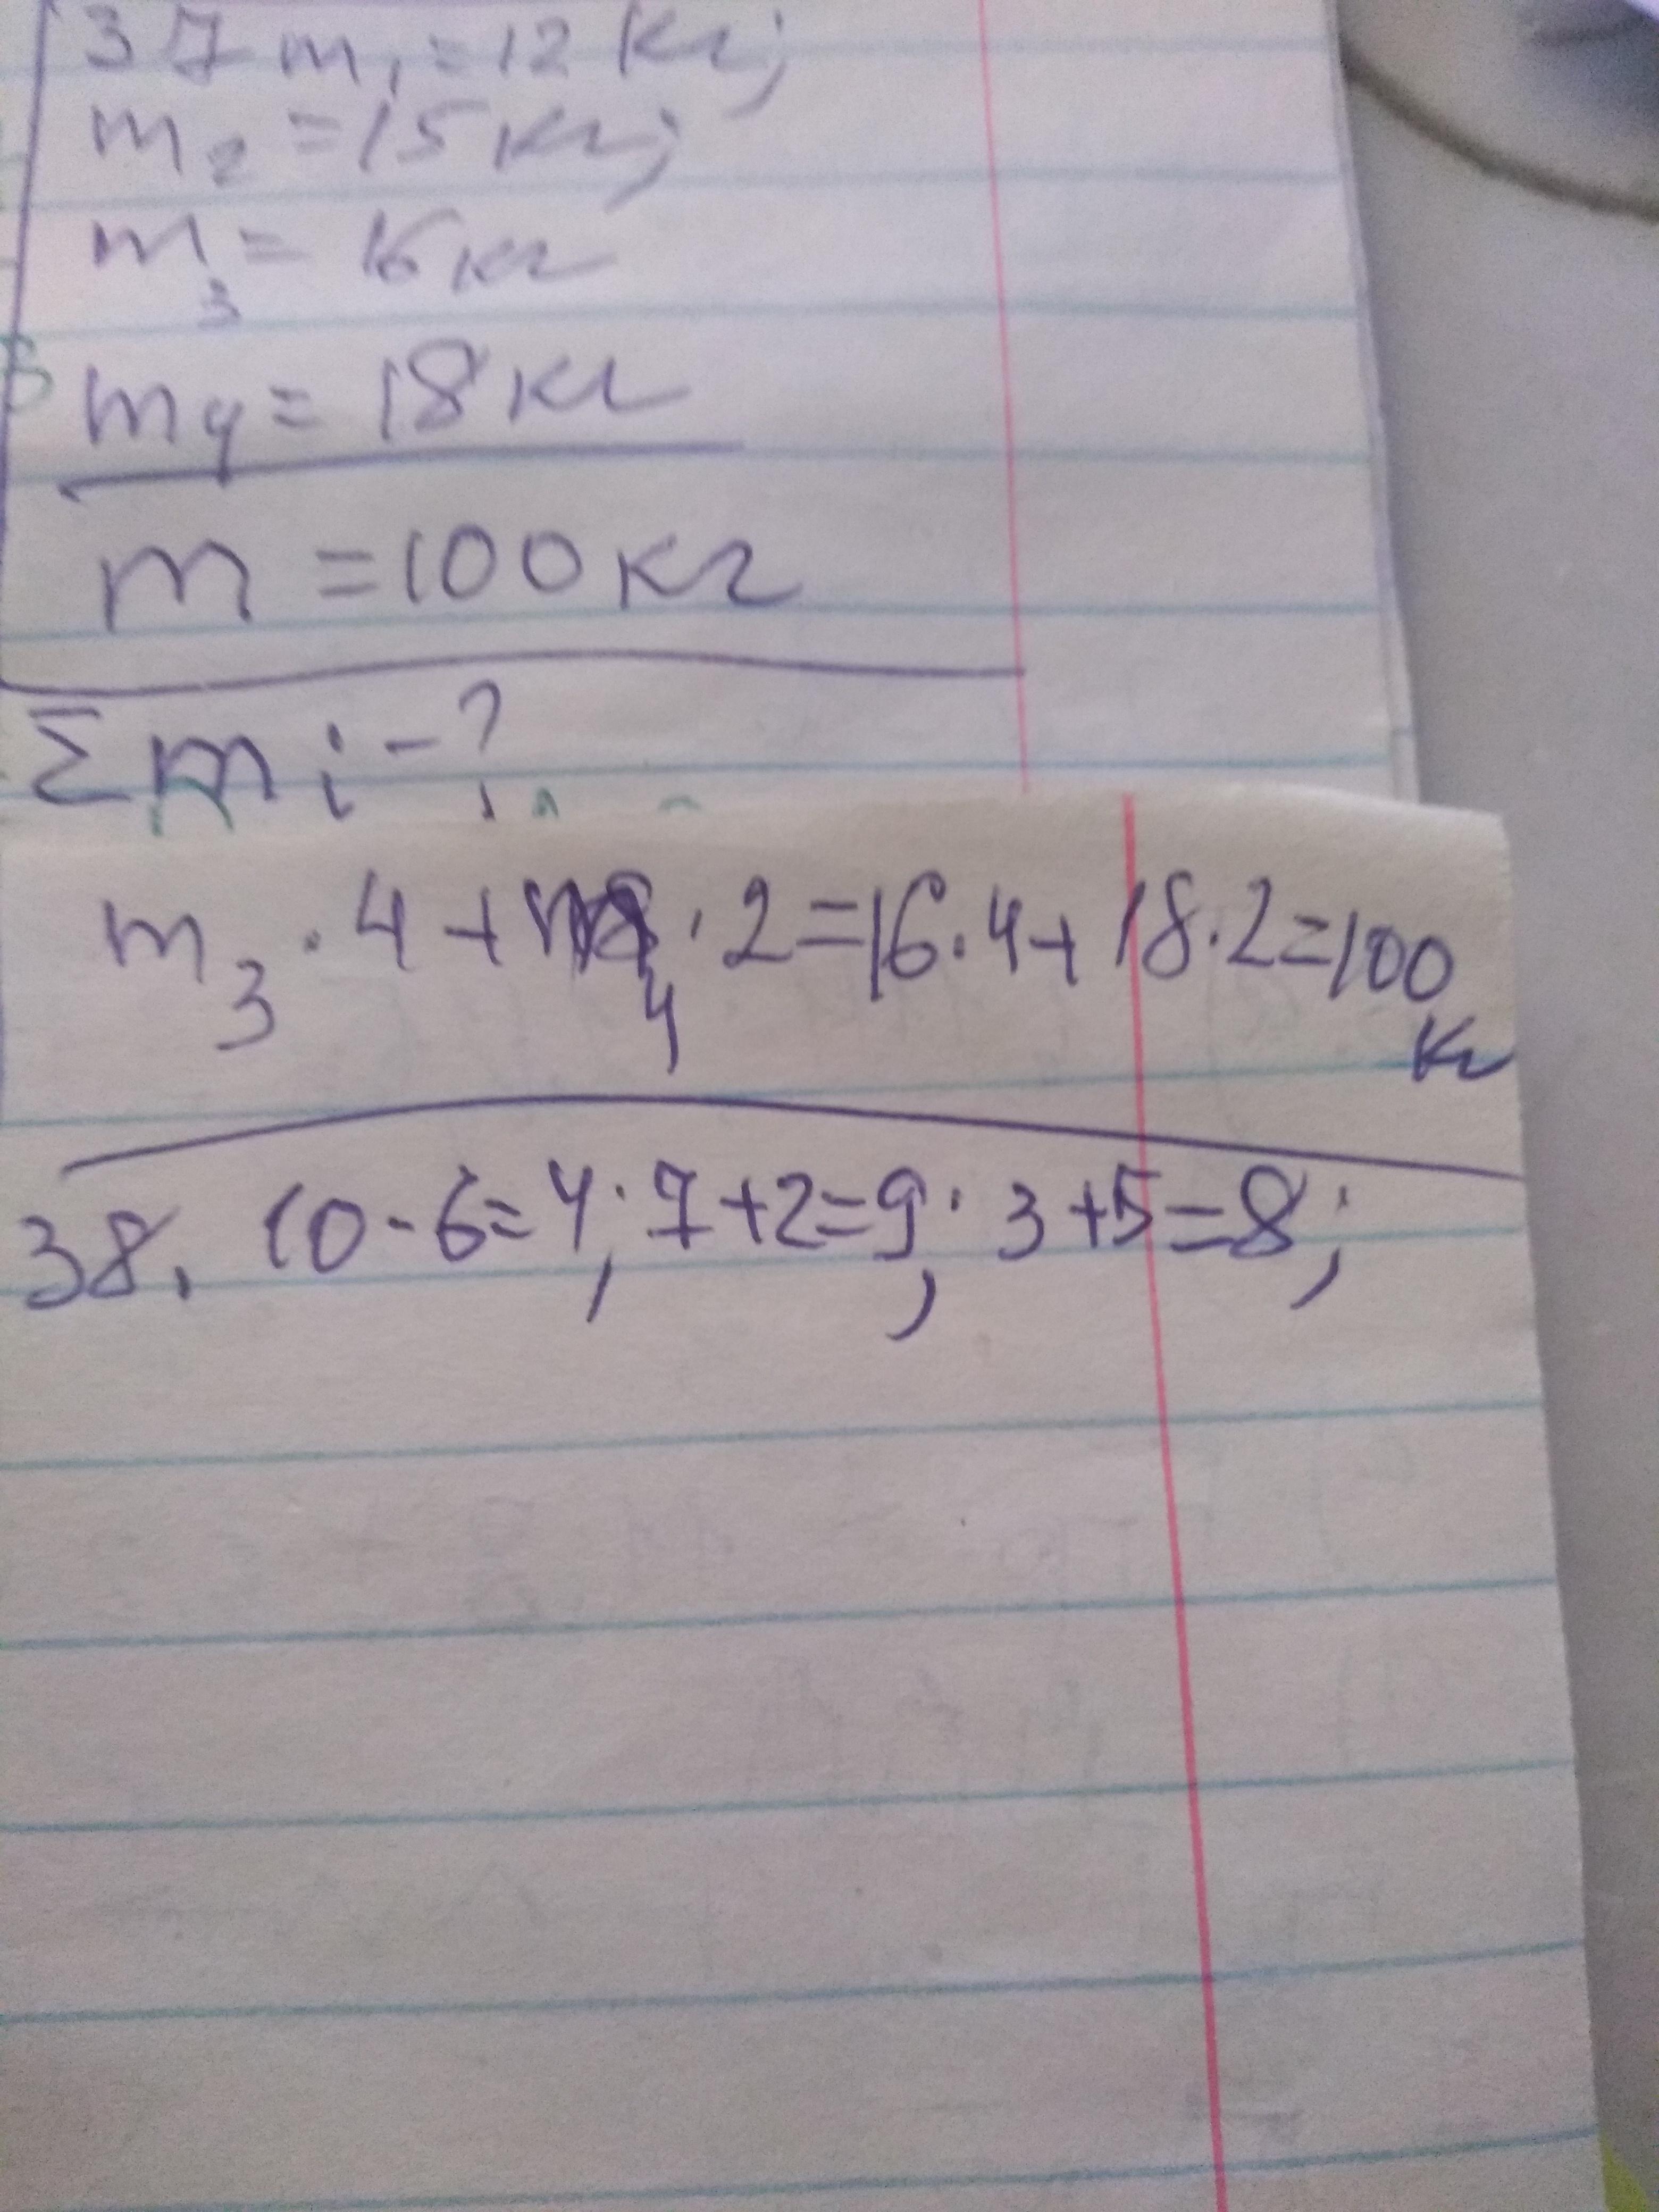 37 m₁ = 12 кг;
m₂ = 15 кг;
m₃ = 16 кг
m₄ = 18 кг
m = 100 кг
Σ mᵢ - ?
m₃ · 4 + m₄ · 2 = 16 · 4 + 18 · 2 = 100
кг
38. 10 - 6 = 4; 7 + 2 = 9; 3 + 5 = 8;